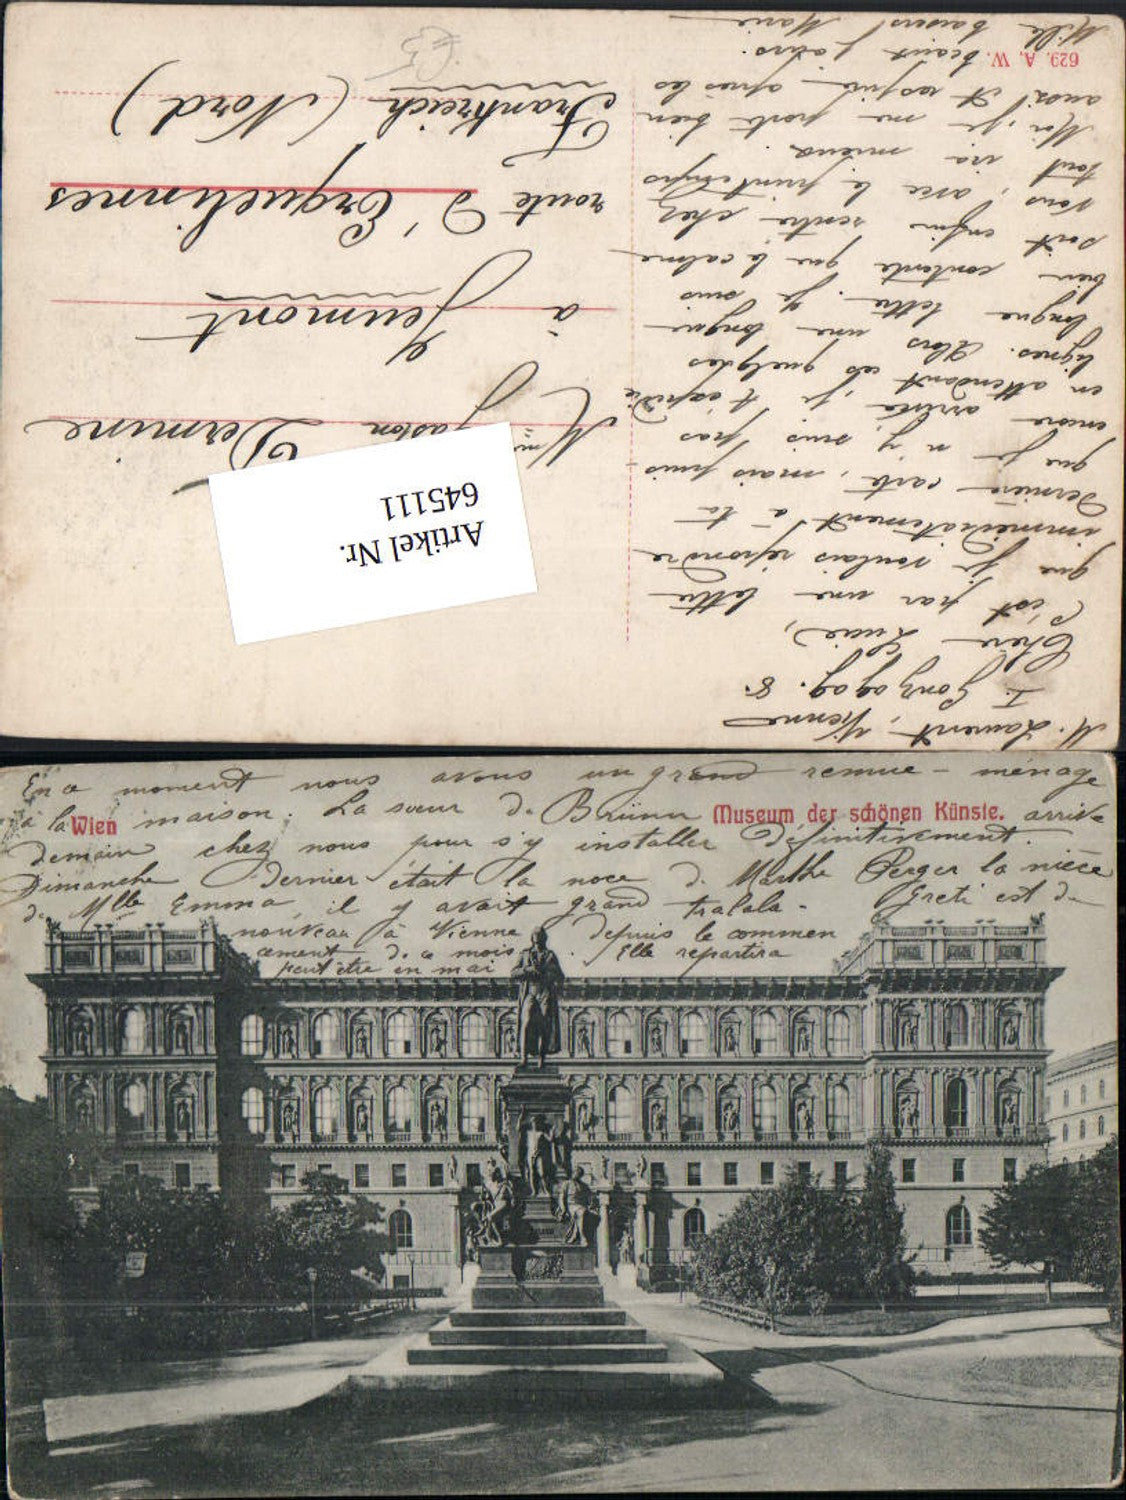 M. Laurent, Vienne
I. Gonzagag. 8.
Chère Lucie,
C'est par une lettre
que je voulais répondre
immédiatement à ta
dernière carte, mais puis-
que je n'y suis pas
encore arrivée, je t'expédie
en attendant ces quelques
lignes. Alors une longue
longue lettre. Je suis
bien contente que le calme
soit enfin rentré chez
vous, avec le printemps
tout ira mieux.
Moi, je me porte bien
aussi et aspire après les
beaux jours.
Mille baisers Marie
629. A. W.
Mme Gaston Dermine
à Jeumont
route d'Erquelinnes
Frankreich (Nord)
Artikel Nr.
645111
En ce moment nous avons un grand remue-ménage
à la maison. La sœur de Brünn arrive
Wien
Museum der schönen Künste.
demain chez nous pour s'y installer définitivement.
Dimanche dernier était la noce de Marthe Perger la nièce
de Mlle Emma, il y avait grand tralala. Greti est de
nouveau à Vienne depuis le commen
cement de ce mois. Elle repartira
peut être en mai